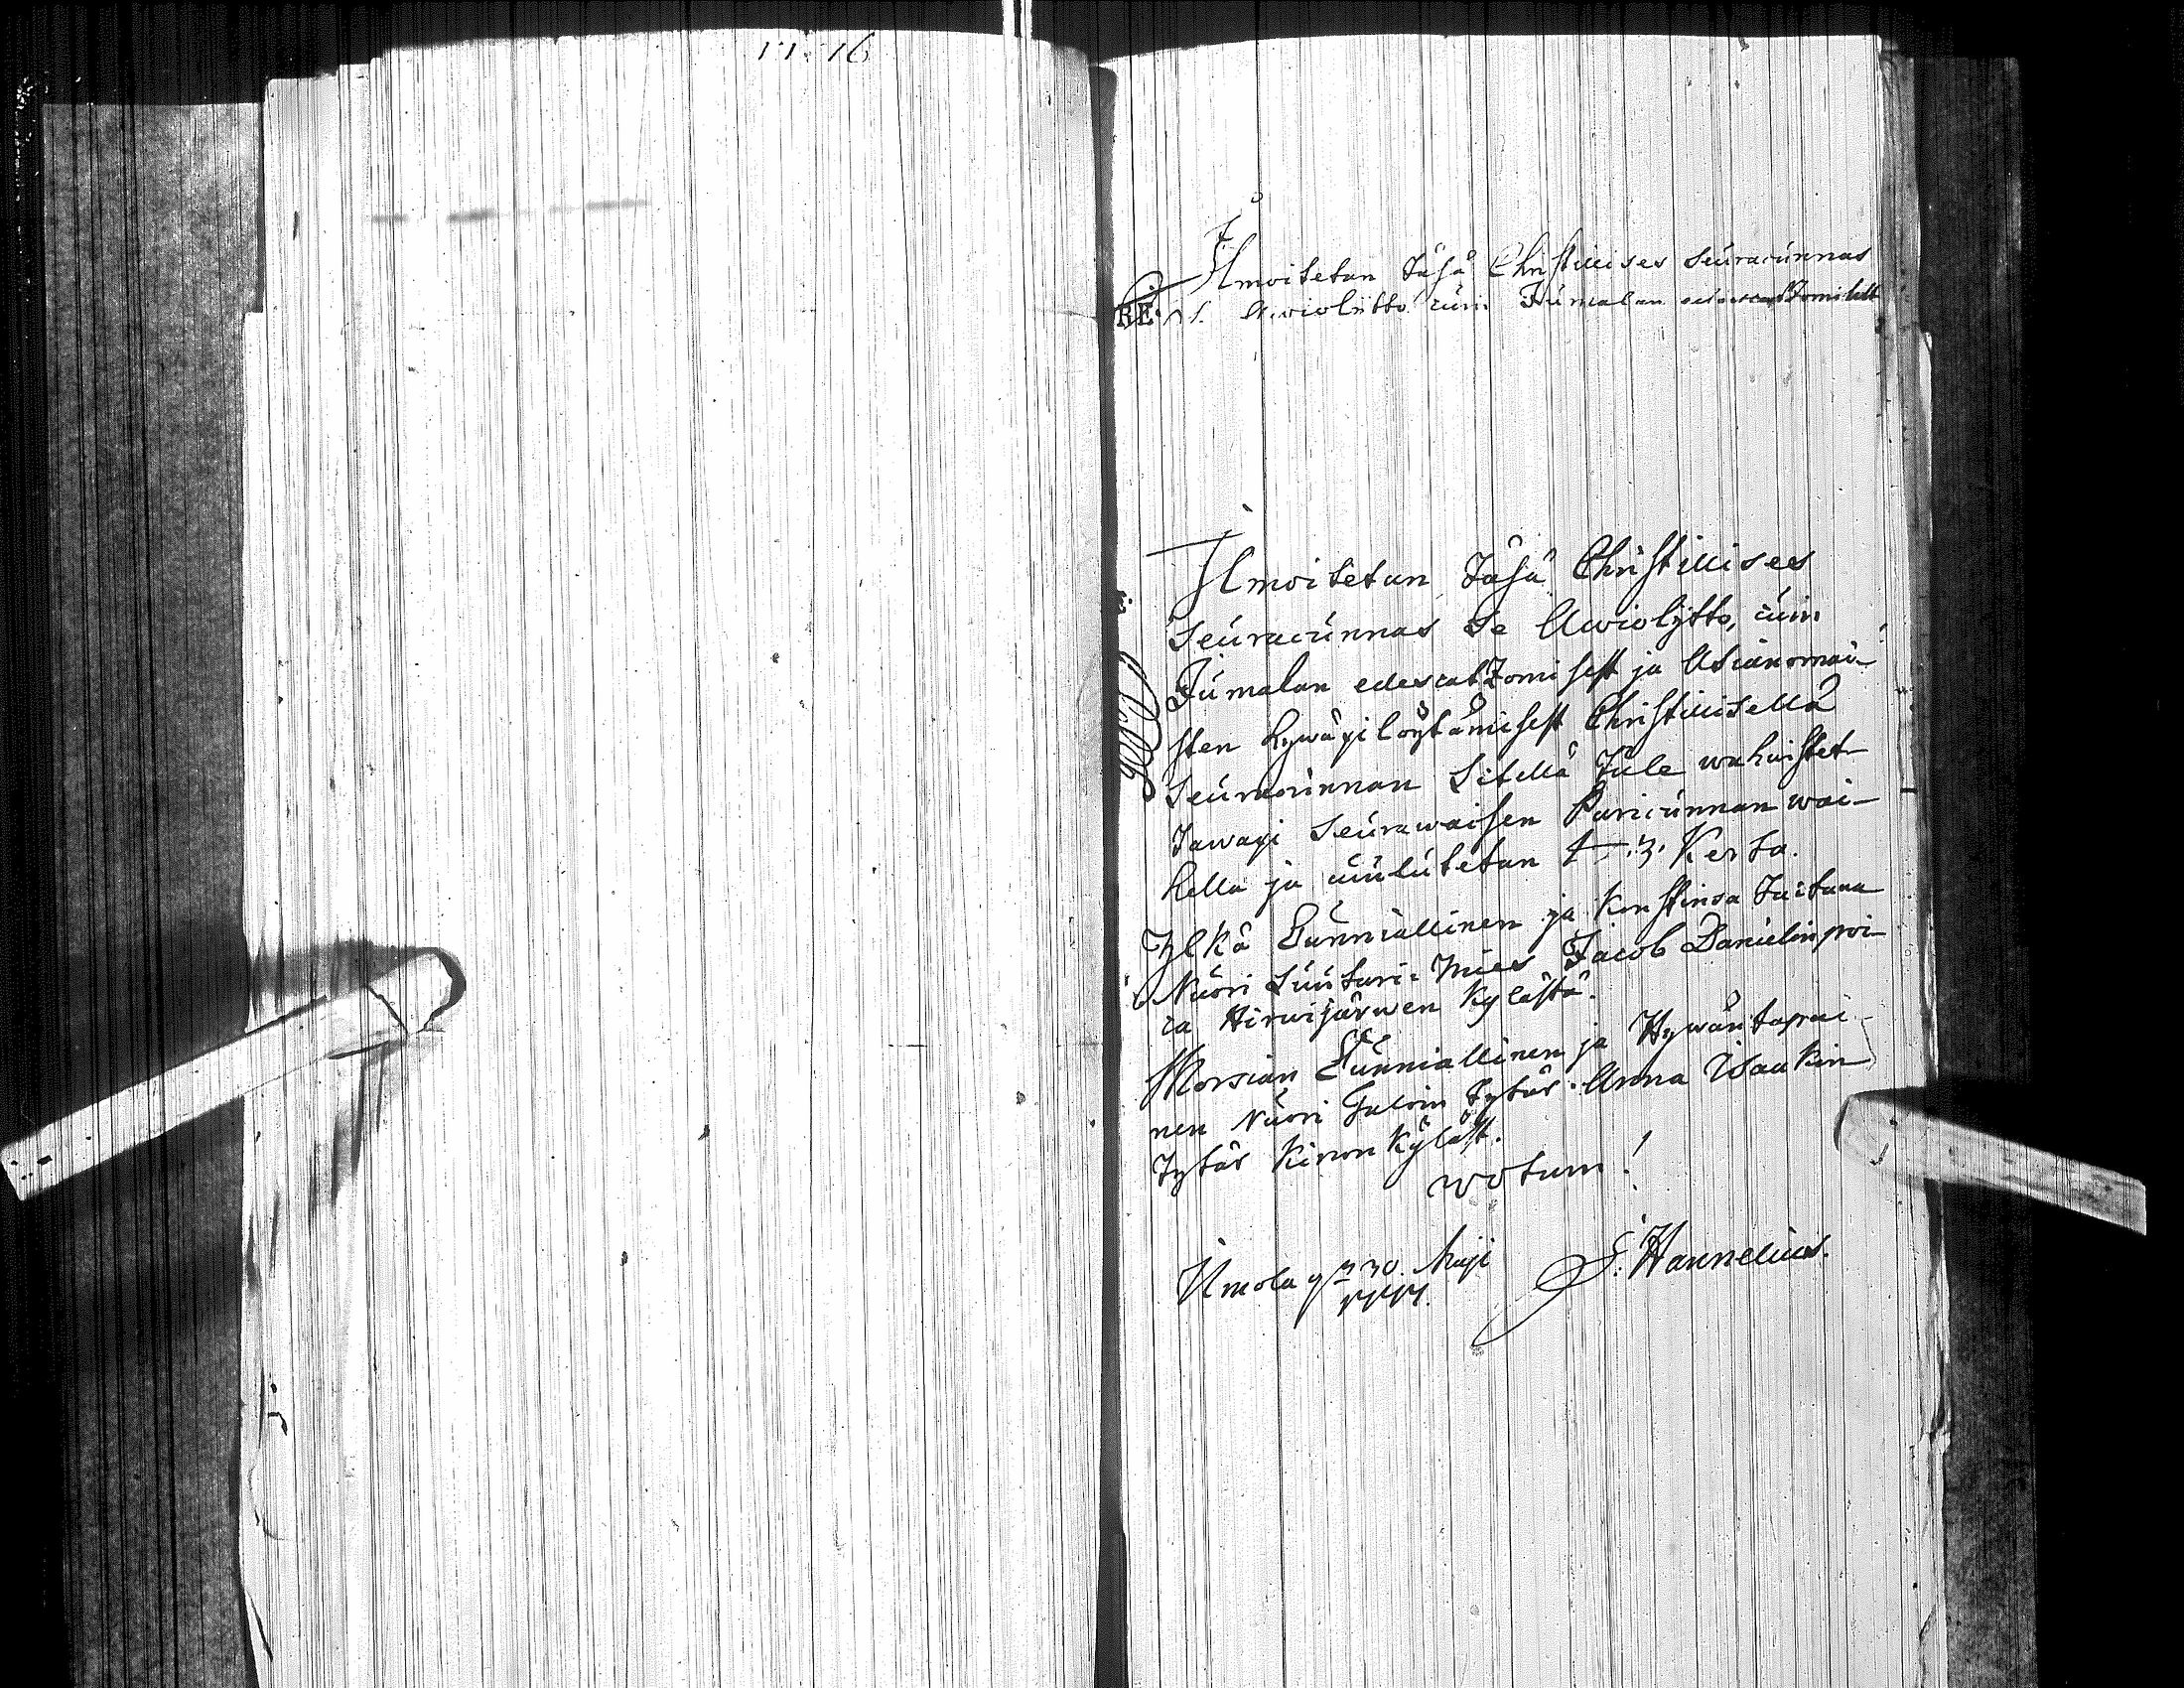 11.16
Ilmoitetan täsä Christillises seuracunnas
RE. s. Awioliitto cuin Jumalan edescatzomisest
Ilmoitetan täsä Christillises
Seuracunnas se Awiolijtto, cuin
Jumalan edescatzomisest ja Asianomai-
sten hywäxi löytämisest Christillisellä
Seuracunnan Sitellä Tule wahwistet-
tawaxi Seurawaisen Paricunnan wäi-
hellä ja cuulutetan 3. Kerta.
Ylkä Cunniallinen ja Konstinsa Taitawa
Nuori Suutari-Mies Jacob Danielin poi-
ca Hirwijärwen Kylästä.
Morsian Cunniallinen ja Hywäntapai-
nen Nuori Taloin Tytär Anna Isaakin
Tytär Kinon Kyläst.
wotum!
Umola 30 Maji
S. Hannelius.